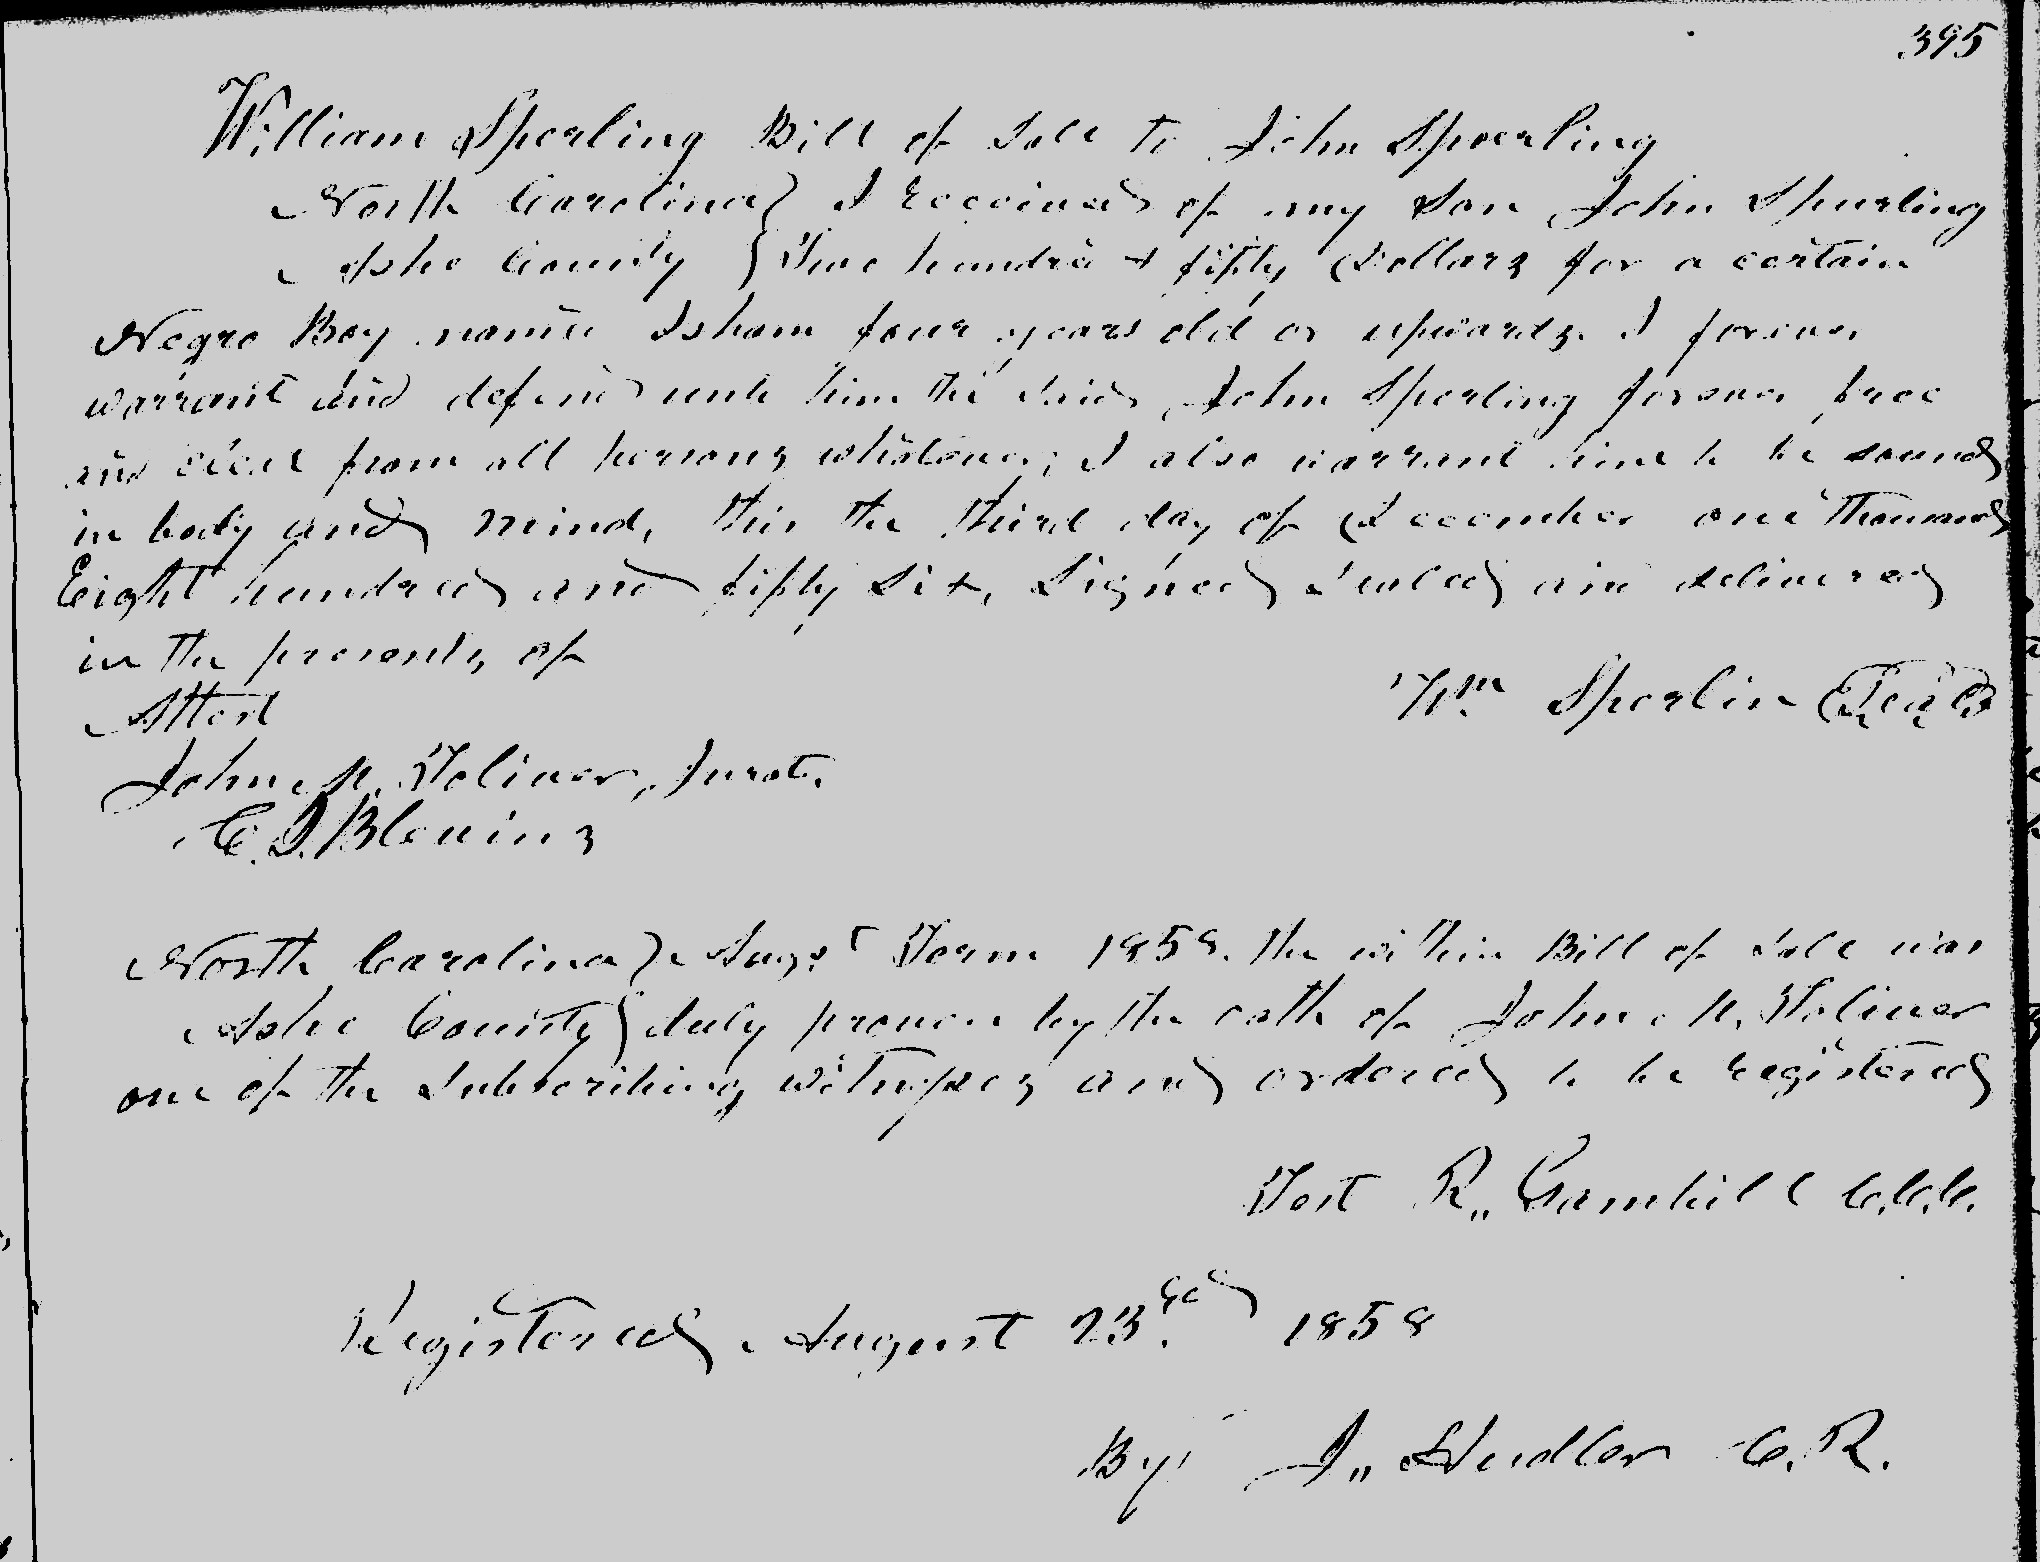 395
William Sperling Bill of Sale to John Sperling
North Carolina } I received of my son John Spurling
Ashe County } Two hundred + fifty Dollars for a certain
Negro Boy named Isham four years old or upwards. I forever
warrant and defend unto him the said John Sperling forever free
and clear from all persons whatever; I also warrant him to be sound
in body and mind, this the third day of December one thousand
Eight hundred and fifty six, Signed Sealed and delivered
in the presents of
Attest
Wm Sperlin (Seal)
John M. Toliver, Jurat.
C. J. Blevins
North Carolina } Augst Term 1858. The within Bill of Sale was
Ashe County } duly proven by the oath of John M. Toliver
one of the Subscribing witnesses and ordered to be registered
Test R,, Gambill C.C.C.
Registered August 23rd 1858
By J,, Hudler C.R.